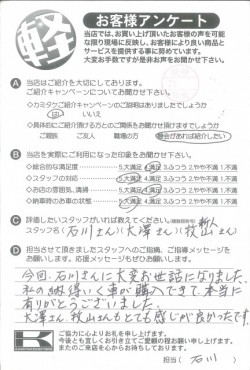 軽
お客様アンケート
当店では、お買い上げ頂いたお客様の声を可能
な限り現場に反映し、お客様により良い商品と
サービスを提供する事に努めています。
大変お手数ですが是非お声をお聞かせ下さい。
A 当店はご紹介を大切にしております。
ご紹介キャンペーンについてお聞かせ下さい。
・カミタクご紹介キャンペーンのご説明はありましたでしょうか
はい いいえ
・具体的にご紹介頂ける方とのご関係をお聞かせ頂けますでしょうか
ご親戚 ご友人 職場の方 機会があれば紹介したい
B 当店を実際にご利用になった印象をお聞かせ下さい。
・総合的な満足度 5.大満足 4.満足 3.ふつう 2.やや不満 1.不満
・スタッフの対応 5.大満足 4.満足 3.ふつう 2.やや不満 1.不満
・お店の雰囲気、清掃 5.大満足 4.満足 3.ふつう 2.やや不満 1.不満
・納車時のお車の状態 5.大満足 4.満足 3.ふつう 2.やや不満 1.不満
C 評価したいスタッフがいれば教えてください。(複数回答可)
スタッフ名(石川さん)(大澤さん)(牧山さん)
D 担当させて頂きましたスタッフへのご指摘、ご指導メッセージを
お願いします。応援メッセージもぜひお願いします。
今回、石川さんに大変お世話になりました。
私の納得いく車が購入できて、本当に
有りがとうございました。
大澤さん、牧山さんもとても感じが良かったです。
ご協力に心よりお礼を申し上げます。
今後とも宜しくお引き立てご愛顧の程お願い申し上げます。
またのご来店を心からお待ちしております。
担当(石川)